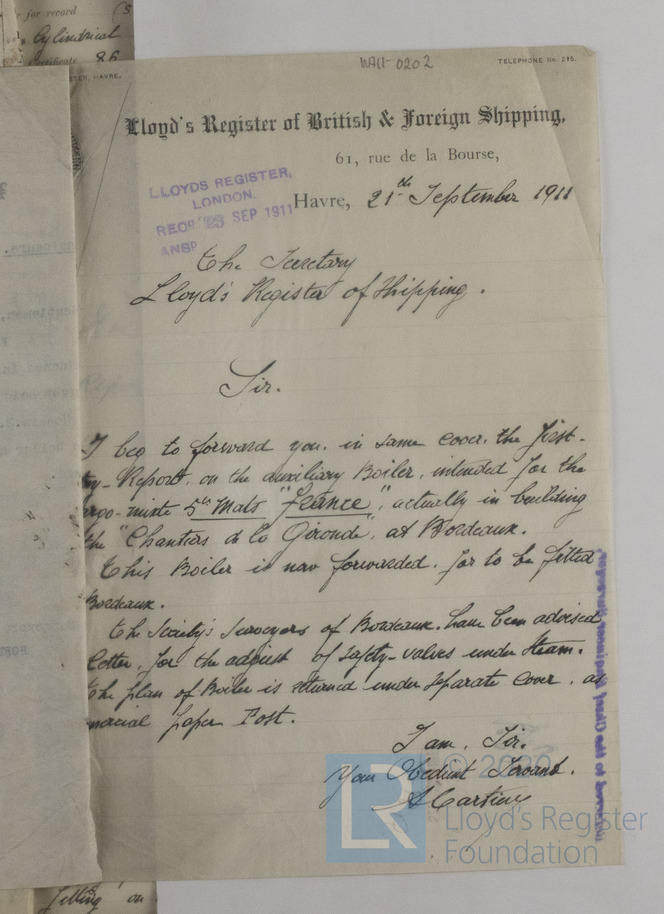 for record
Cylindrical
Certificate 86
HAVRE.
WA11-0202
TELEPHONE No. 215.
Lloyd's Register of British & Foreign Shipping,
61, rue de la Bourse,
LLOYDS REGISTER,
LONDON.
RECD 23 SEP 1911
ANSD
Havre, 21th September 1911
The Secretary
Lloyd's Register of Shipping.
Sir.
I beg to forward you, in same cover, the first-
ty-Report, on the auxiliary Boiler, intended for the
rgo-mixte 5th Mats "France", actually in building
the "Chantiers de la Gironde", at Bordeaux.
This Boiler is now forwarded, for to be fitted
Bordeaux.
The Society's Surveyors of Bordeaux, have been advised
letter, for the adjust of safety-valves under steam.
The plan of Boiler is returned under separate cover, as
mercial paper Post.
I am, Sir.
Your Obedient Servant.
© 2020
LR
Lloyd's Register
Foundation
fitting on